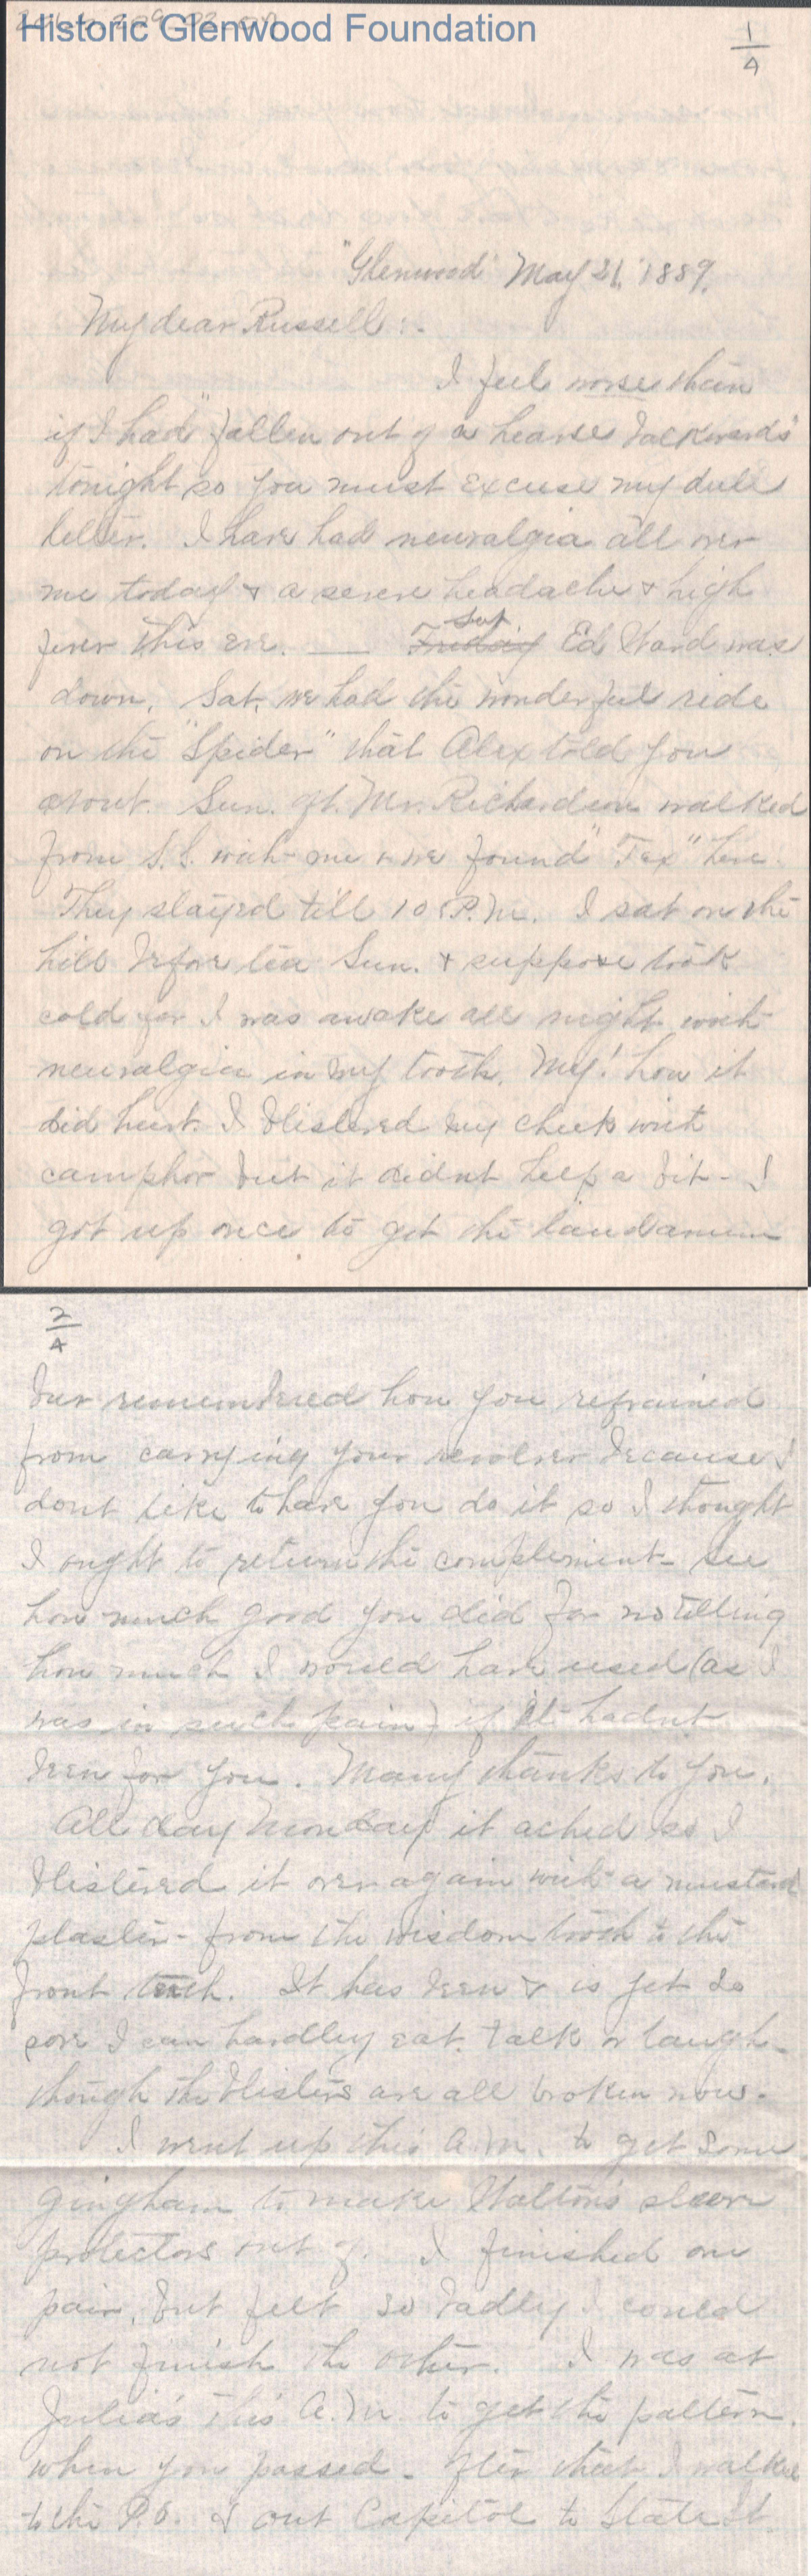 Historic Glenwood Foundation
1/4
"Glenwood" May 21, 1889.
My dear Russell :-
I feel worse than
if I had "fallen out of a hearse backwards"
tonight so you must excuse my dull
letter. I have had neuralgia all over
me today & a severe headache & high
fever this eve. — Sat Friday Ed Ward was
down. Sat. we had the wonderful ride
on the "Spider" that Alex told you
about. Sun. aft. Mr. Richardson walked
from S.S. with me & we found "Tex" here.
They stayed till 10 P.M. I sat on the
hill before tea Sun. & suppose took
cold for I was awake all night with
neuralgia in my tooth. My! how it
did hurt. I blistered my cheek with
camphor but it didnt help a bit - I
got up once to get the laudanum
2/4
but remembered how you refrained
from carrying your revolver because I
dont like to have you do it so I thought
I ought to return the complement - See
how much good you did for no telling
how much I would have used (as I
was in such pain) if it hadnt
been for you. Many thanks to you.
All day Monday it ached so I
blistered it over again with a mustard
plaster - from the wisdom tooth to the
front teeth. It has been & is yet so
sore I can hardly eat, talk or laugh -
though the blisters are all broken now -
I went up this A.M. to get some
gingham to make Walton's sleeve
protectors out of. I finished one
pair, but felt so badly I could
not finish the other. I was at
Julia's this A.M. to get the pattern
when you passed - After that I walked
to the P.O. & out Capitol to State St.